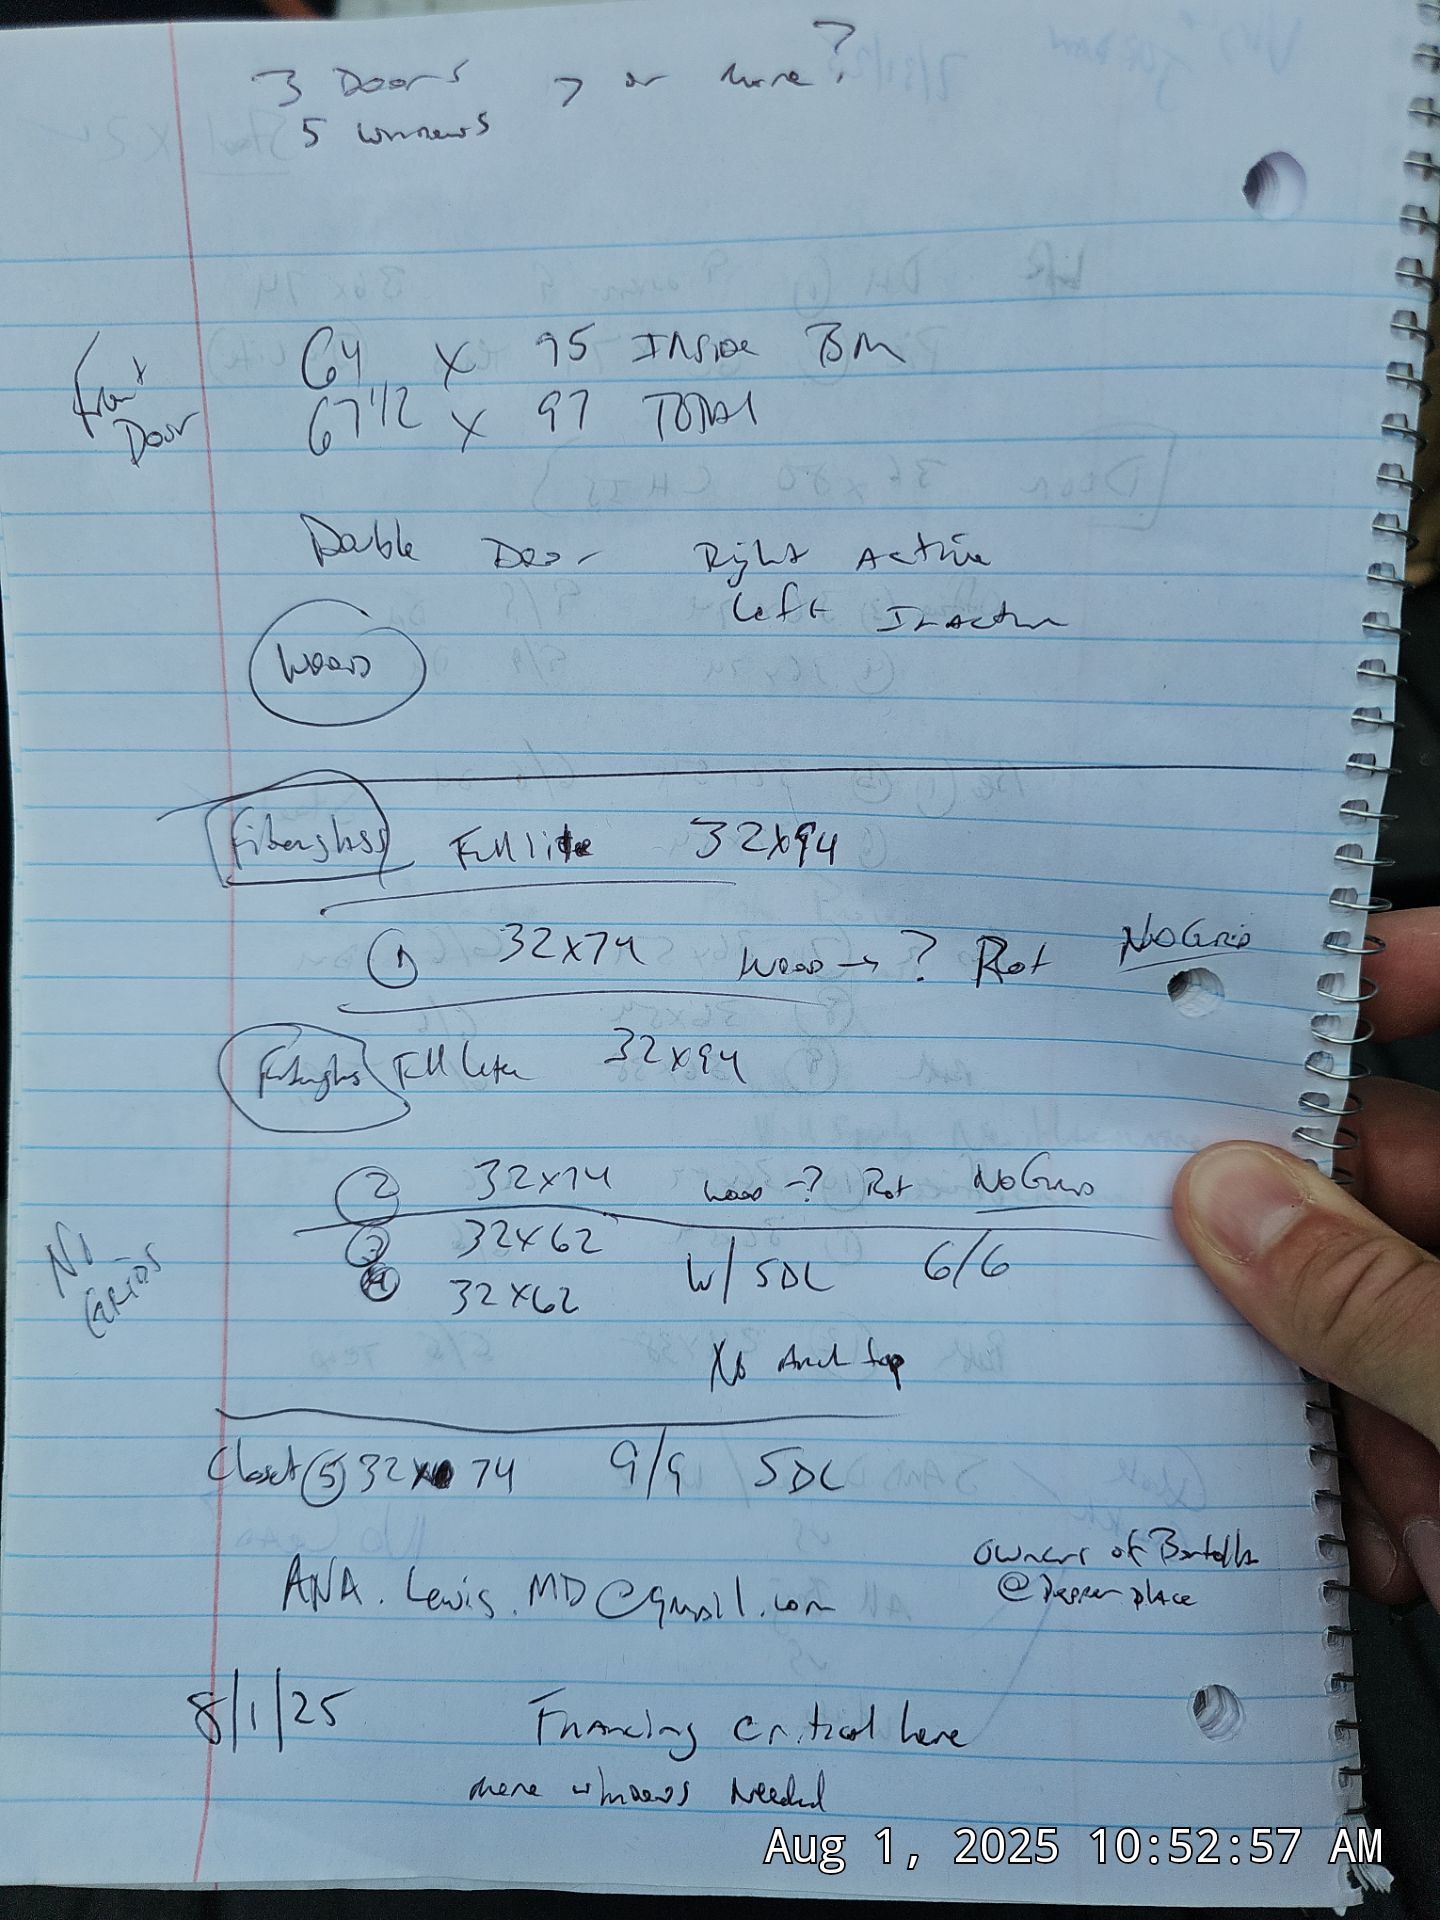 3 Doors > or more?
5 windows
Front
Door
64 x 95 Inside BM
67 1/2 x 97 TOTAL
Double Door Right Active
Left Inactive
Wood
Fiberglass Full lite 32x94
1 32x74 Wood → ? Rot No Grid
Fiberglass Full lite 32x94
2 32x74 wood → ? Rot No Grids
No
GRIDS
3 32x62
W/ SDL 6/6
4 32x62
No Arch top
Closet 5 32x74 9/9 SDL
owners of
ANA.Lewis.MD@gmail.com
@ place
8/1/25 Financing critical here
more windows Needed
Aug 1, 2025 10:52:57 AM